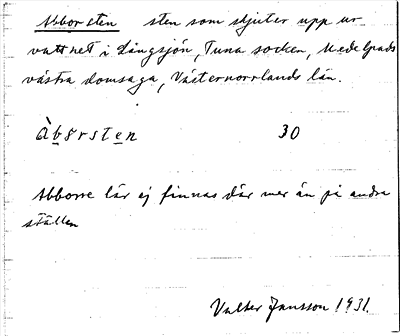 Abborsten sten som skjuter upp ur
vattnet i Långsjön, Tuna socken, Medelpads
västra domsaga, Västernorrlands län.
Àbørsten 30
Abborre lär ej finnas där mer än på andra
ställen
Valter Jansson 1931.